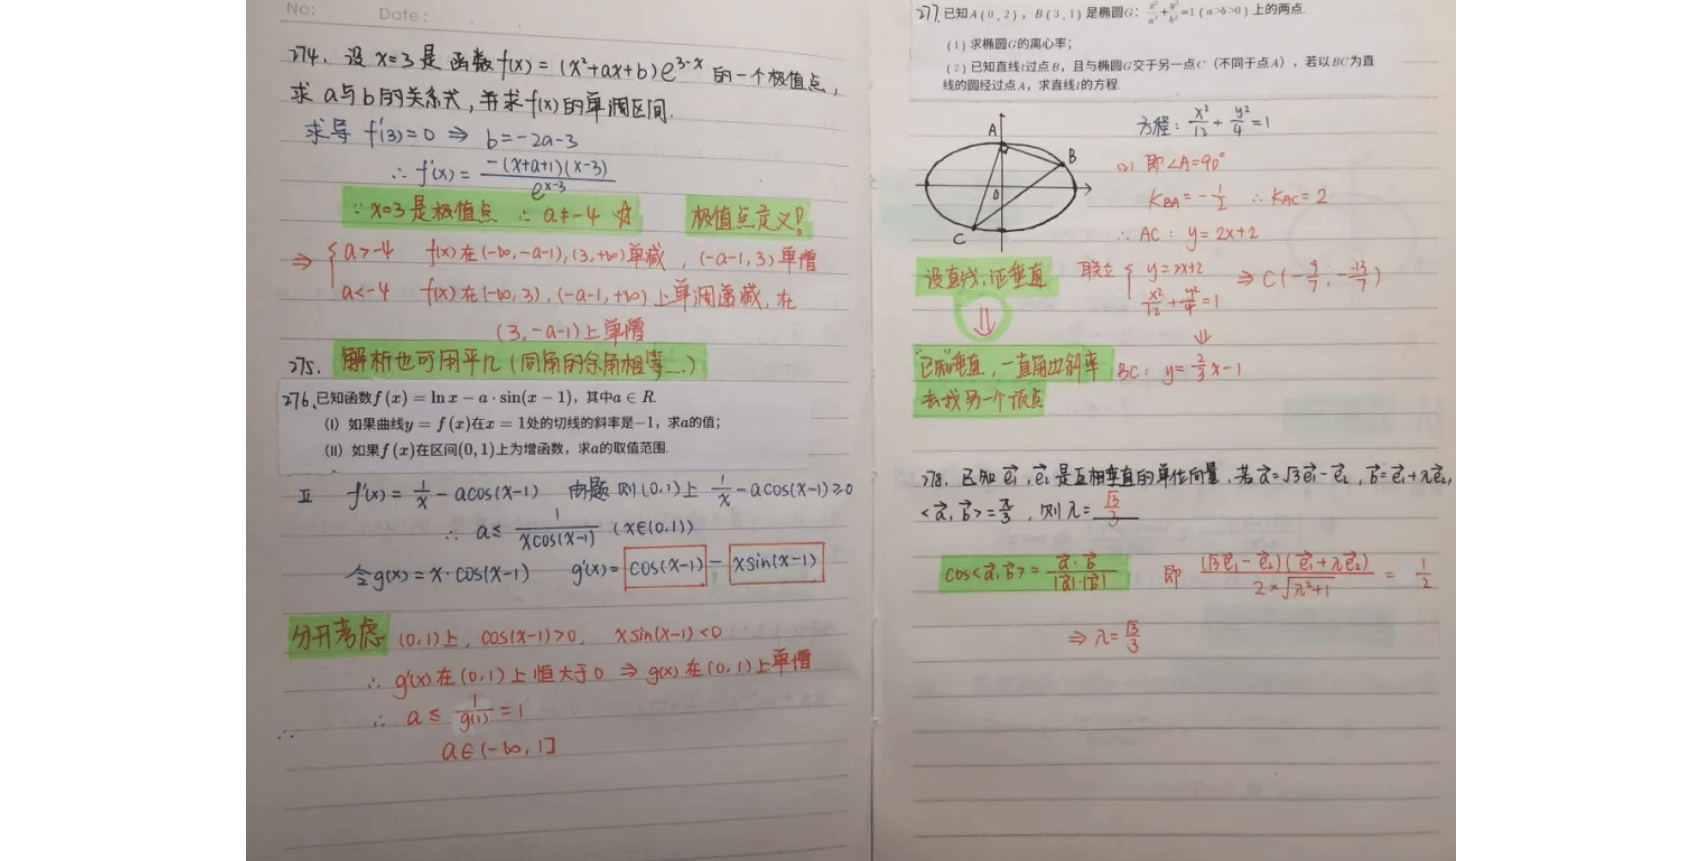 No:
Date:
274. 设 x=3 是函数 f(x) = (x²+ax+b)e^{3-x} 的一个极值点,
求 a与b的关系式, 并求f(x)的单调区间.
求导 f'(3)=0 ⇒ b=-2a-3
∴ f'(x) = -(x+a+1)(x-3) / e^{x-3}
∵ x=3是极值点 ∴ a≠-4 ☆ 极值点定义!
⇒ { a>-4 f(x)在(-∞,-a-1),(3,+∞)单减, (-a-1,3)单增
a<-4 f(x)在(-∞,3),(-a-1,+∞)上单调递减, 在
(3,-a-1)上单增
275. 解析也可用平几(同角的余角相等...)
276. 已知函数f(x) = ln x − a · sin(x − 1), 其中a ∈ R.
(I) 如果曲线y = f(x)在x = 1处的切线的斜率是−1, 求a的值;
(II) 如果f(x)在区间(0,1)上为增函数, 求a的取值范围.
II f'(x) = 1/x - acos(x-1) 由题 则(0,1)上 1/x - acos(x-1)≥0
∴ a≤ 1/(xcos(x-1)) (x∈(0,1))
令g(x) = x·cos(x-1) g'(x) = cos(x-1) - xsin(x-1)
分开考虑 (0,1)上, cos(x-1)>0, xsin(x-1)<0
∴ g'(x)在(0,1)上恒大于0 ⇒ g(x)在(0,1)上单增
∴ a ≤ 1/g(1) = 1
∴
a∈(-∞,1]
277. 已知A(0,2), B(3,1)是椭圆G: x²/a²+y²/b²=1(a>b>0)上的两点.
(1) 求椭圆G的离心率;
(2) 已知直线l过点B, 且与椭圆G交于另一点C(不同于点A), 若以BC为直
线的圆经过点A, 求直线l的方程.
A
B
0
C
方程: x²/12 + y²/4 = 1
(2) 即∠A=90°
K_{BA} = -1/2 ∴ K_{AC} = 2
∴ AC: y = 2x+2
设直线, 证垂直 联立 { y=2x+2 x²/12 + y²/4 = 1 ⇒ C(-9/7, -13/7)
⇓ ⇓
"已知"垂直, 一直角边斜率 BC: y = 2/3 x - 1
去找另一个顶点
278. 已知 e⃗₁, e⃗₂ 是互相垂直的单位向量, 若 a⃗=√3e⃗₁-e⃗₂, b⃗=e⃗₁+λe⃗₂,
<a⃗, b⃗> = π/3, 则λ = √3/3
cos<a⃗, b⃗> = a⃗·b⃗ / |a⃗|·|b⃗| 即 (√3e⃗₁-e⃗₂)(e⃗₁+λe⃗₂) / 2×√(λ²+1) = 1/2
⇒ λ = √3/3